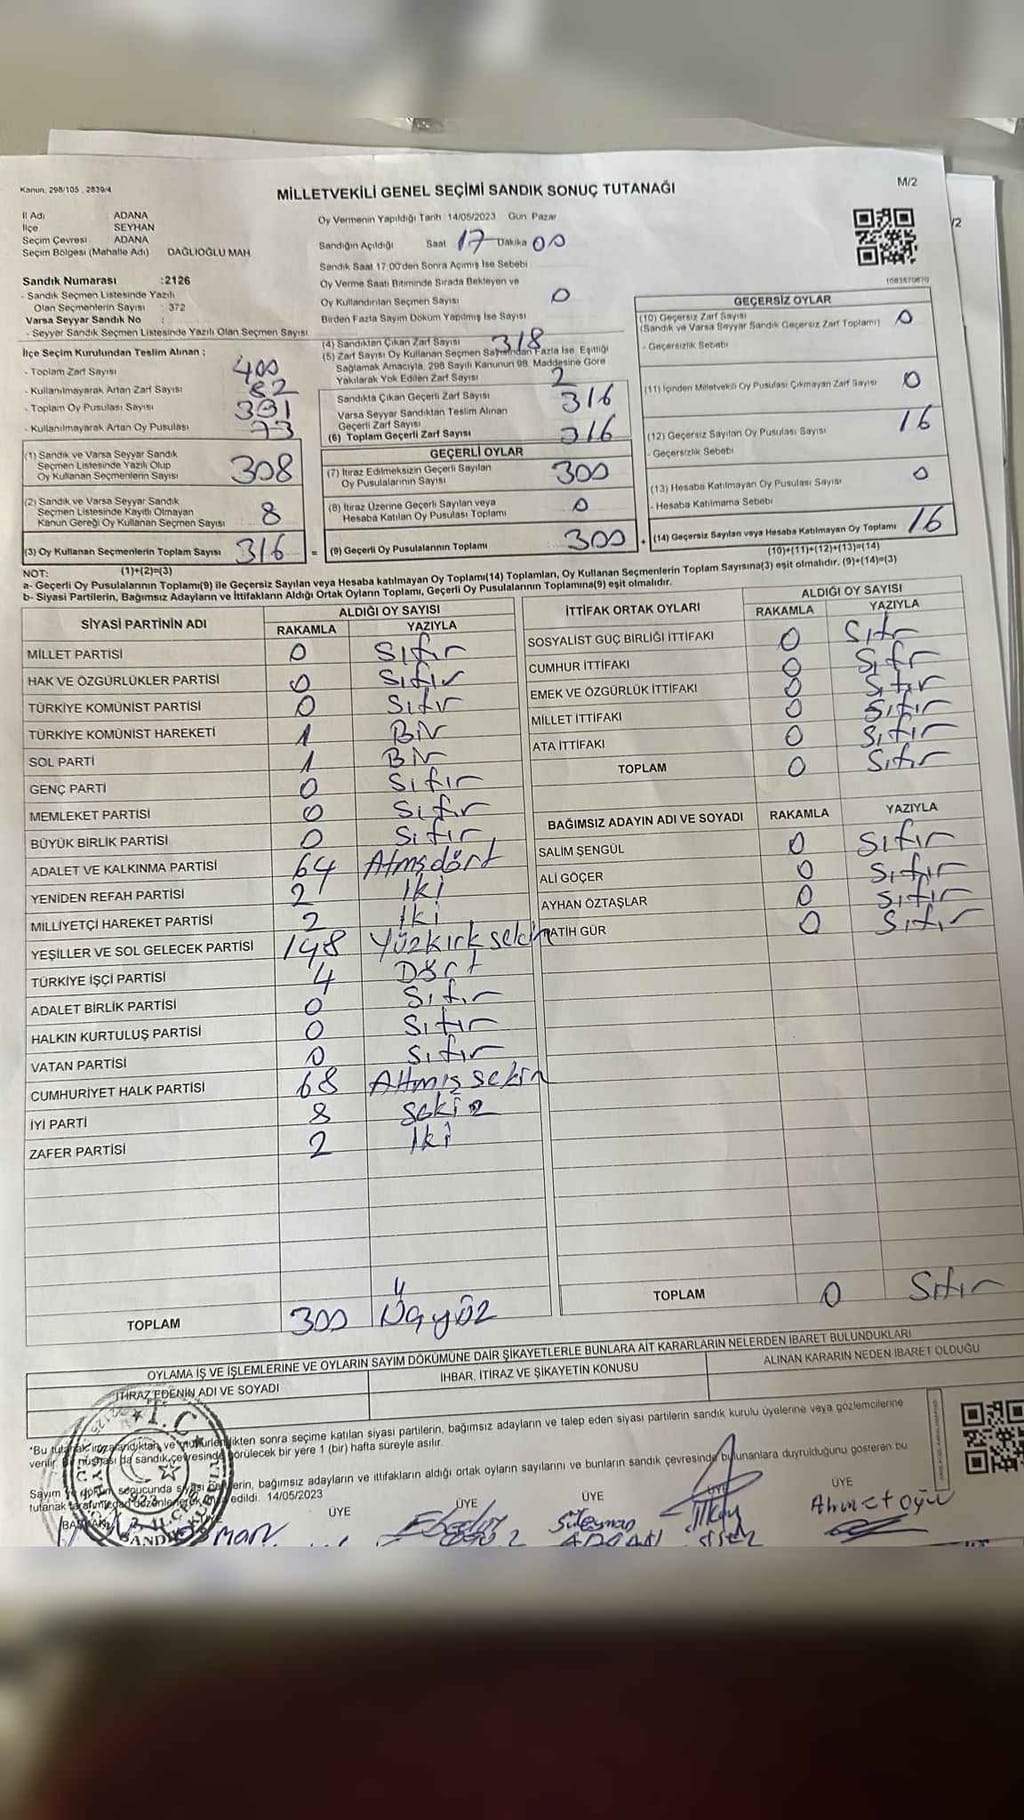 Kanun, 298/105 , 2839/4
MİLLETVEKİLİ GENEL SEÇİMİ SANDIK SONUÇ TUTANAĞI
M/2
/2
İl Adı ADANA
İlçe SEYHAN
Seçim Çevresi ADANA
Seçim Bölgesi (Mahalle Adı) DAĞLIOĞLU MAH
Sandık Numarası :2126
- Sandık Seçmen Listesinde Yazılı
Olan Seçmenlerin Sayısı : 372
Varsa Seyyar Sandık No :
- Seyyar Sandık Seçmen Listesinde Yazılı Olan Seçmen Sayısı
İlçe Seçim Kurulundan Teslim Alınan ;
- Toplam Zarf Sayısı 400
- Kullanılmayarak Artan Zarf Sayısı 82
- Toplam Oy Pusulası Sayısı 391
- Kullanılmayarak Artan Oy Pusulası 73
(1) Sandık ve Varsa Seyyar Sandık
Seçmen Listesinde Yazılı Olup
Oy Kullanan Seçmenlerin Sayısı 308
(2) Sandık ve Varsa Seyyar Sandık
Seçmen Listesinde Kayıtlı Olmayan
Kanun Gereği Oy Kullanan Seçmen Sayısı 8
(3) Oy Kullanan Seçmenlerin Toplam Sayısı 316 =
(1)+(2)=(3)
Oy Vermenin Yapıldığı Tarih : 14/05/2023 Gün: Pazar
Sandığın Açıldığı Saat 17 Dakika 00
Sandık Saat 17.00'den Sonra Açımış İse Sebebi
Oy Verme Saati Bitiminde Sırada Bekleyen ve
Oy Kullandırılan Seçmen Sayısı 0
Birden Fazla Sayım Döküm Yapılmış İse Sayısı
(4) Sandıktan Çıkan Zarf Sayısı 318
(5) Zarf Sayısı Oy Kullanan Seçmen Sayısından Fazla İse, Eşitliği
Sağlamak Amacıyla, 298 Sayılı Kanunun 98. Maddesine Göre
Yakılarak Yok Edilen Zarf Sayısı 2
Sandıkta Çıkan Geçerli Zarf Sayısı 316
Varsa Seyyar Sandıktan Teslim Alınan
Geçerli Zarf Sayısı
(6) Toplam Geçerli Zarf Sayısı 316
GEÇERLİ OYLAR
(7) İtiraz Edilmeksizin Geçerli Sayılan
Oy Pusulalarının Sayısı 300
(8) İtiraz Üzerine Geçerli Sayılan veya
Hesaba Katılan Oy Pusulası Toplamı 0
(9) Geçerli Oy Pusulalarının Toplamı 300 +
1083570870
GEÇERSİZ OYLAR
(10) Geçersiz Zarf Sayısı 0
(Sandık ve Varsa Seyyar Sandık Geçersiz Zarf Toplamı)
- Geçersizlik Sebebi
(11) İçinden Milletvekili Oy Pusulası Çıkmayan Zarf Sayısı 0
(12) Geçersiz Sayılan Oy Pusulası Sayısı 16
- Geçersizlik Sebebi
(13) Hesaba Katılmayan Oy Pusulası Sayısı 0
- Hesaba Katılmama Sebebi
(14) Geçersiz Sayılan veya Hesaba Katılmayan Oy Toplamı 16
(10)+(11)+(12)+(13)=(14)
NOT:
a- Geçerli Oy Pusulalarının Toplamı(9) ile Geçersiz Sayılan veya Hesaba katılmayan Oy Toplamı(14) Toplamları, Oy Kullanan Seçmenlerin Toplam Sayısına(3) eşit olmalıdır. (9)+(14)=(3)
b- Siyasi Partilerin, Bağımsız Adayların ve İttifakların Aldığı Ortak Oyların Toplamı, Geçerli Oy Pusulalarının Toplamına(9) eşit olmalıdır.
SİYASİ PARTİNİN ADI ALDIĞI OY SAYISI
RAKAMLA YAZIYLA
MİLLET PARTİSİ 0 Sıfır
HAK VE ÖZGÜRLÜKLER PARTİSİ 0 Sıfır
TÜRKİYE KOMÜNİST PARTİSİ 0 Sıfır
TÜRKİYE KOMÜNİST HAREKETİ 1 Bir
SOL PARTİ 1 Bir
GENÇ PARTİ 0 Sıfır
MEMLEKET PARTİSİ 0 Sıfır
BÜYÜK BİRLİK PARTİSİ 0 Sıfır
ADALET VE KALKINMA PARTİSİ 64 Atmşdört
YENİDEN REFAH PARTİSİ 2 İki
MİLLİYETÇİ HAREKET PARTİSİ 2 İki
YEŞİLLER VE SOL GELECEK PARTİSİ 148 Yüzkırksekiz
TÜRKİYE İŞÇİ PARTİSİ 4 Dört
ADALET BİRLİK PARTİSİ 0 Sıfır
HALKIN KURTULUŞ PARTİSİ 0 Sıfır
VATAN PARTİSİ 0 Sıfır
CUMHURİYET HALK PARTİSİ 68 Altmış sekiz
İYİ PARTİ 8 Sekiz
ZAFER PARTİSİ 2 İki
TOPLAM 300 Üçyüz
İTTİFAK ORTAK OYLARI ALDIĞI OY SAYISI
RAKAMLA YAZIYLA
SOSYALİST GÜÇ BİRLİĞİ İTTİFAKI 0 Sıfır
CUMHUR İTTİFAKI 0 Sıfır
EMEK VE ÖZGÜRLÜK İTTİFAKI 0 Sıfır
MİLLET İTTİFAKI 0 Sıfır
ATA İTTİFAKI 0 Sıfır
TOPLAM 0 Sıfır
BAĞIMSIZ ADAYIN ADI VE SOYADI RAKAMLA YAZIYLA
SALİM ŞENGÜL 0 Sıfır
ALİ GÖÇER 0 Sıfır
AYHAN ÖZTAŞLAR 0 Sıfır
FATİH GÜR 0 Sıfır
TOPLAM 0 Sıfır
OYLAMA İŞ VE İŞLEMLERİNE VE OYLARIN SAYIM DÖKÜMÜNE DAİR ŞİKAYETLERLE BUNLARA AİT KARARLARIN NELERDEN İBARET BULUNDUKLARI
İTİRAZ EDENİN ADI VE SOYADI İHBAR, İTİRAZ VE ŞİKAYETİN KONUSU ALINAN KARARIN NEDEN İBARET OLDUĞU
*Bu tutanak imzalandıktan ve mühürlendikten sonra seçime katılan siyasi partilerin, bağımsız adayların ve talep eden siyasi partilerin sandık kurulu üyelerine veya gözlemcilerine
verilir. Bir nüshası da sandık çevresinde görülecek bir yere 1 (bir) hafta süreyle asılır.
Sayım ve döküm sonucunda siyasi partilerin, bağımsız adayların ve ittifakların aldığı ortak oyların sayılarını ve bunların sandık çevresinde bulunanlara duyrulduğunu gösteren bu
tutanak tarafımızdan düzenlenerek imza edildi. 14/05/2023
BAŞKAN ÜYE ÜYE ÜYE ÜYE ÜYE
Süleyman İlkay Ahmet
T.C.